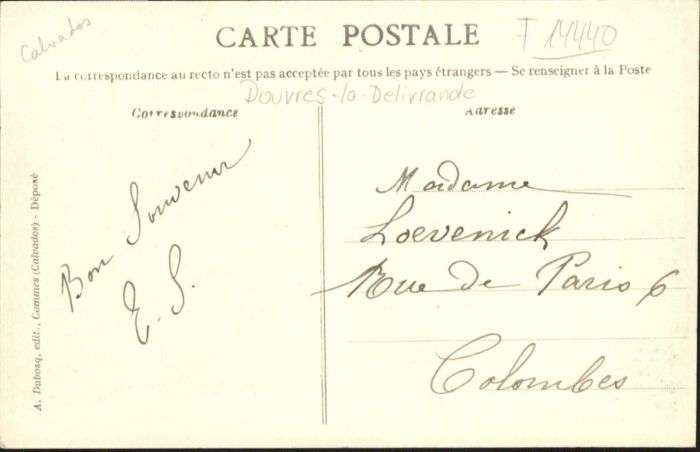 Calvados
CARTE POSTALE
F 14440
La correspondance au recto n'est pas acceptée par tous les pays étrangers — Se renseigner à la Poste
Douvres-la-Delivrande
Correspondance
Adresse
Bon Souvenir
E. S.
Madame
Loevenick
Rue de Paris 6
Colombes
A. Dubosq, édit., Commes (Calvados) - Déposé